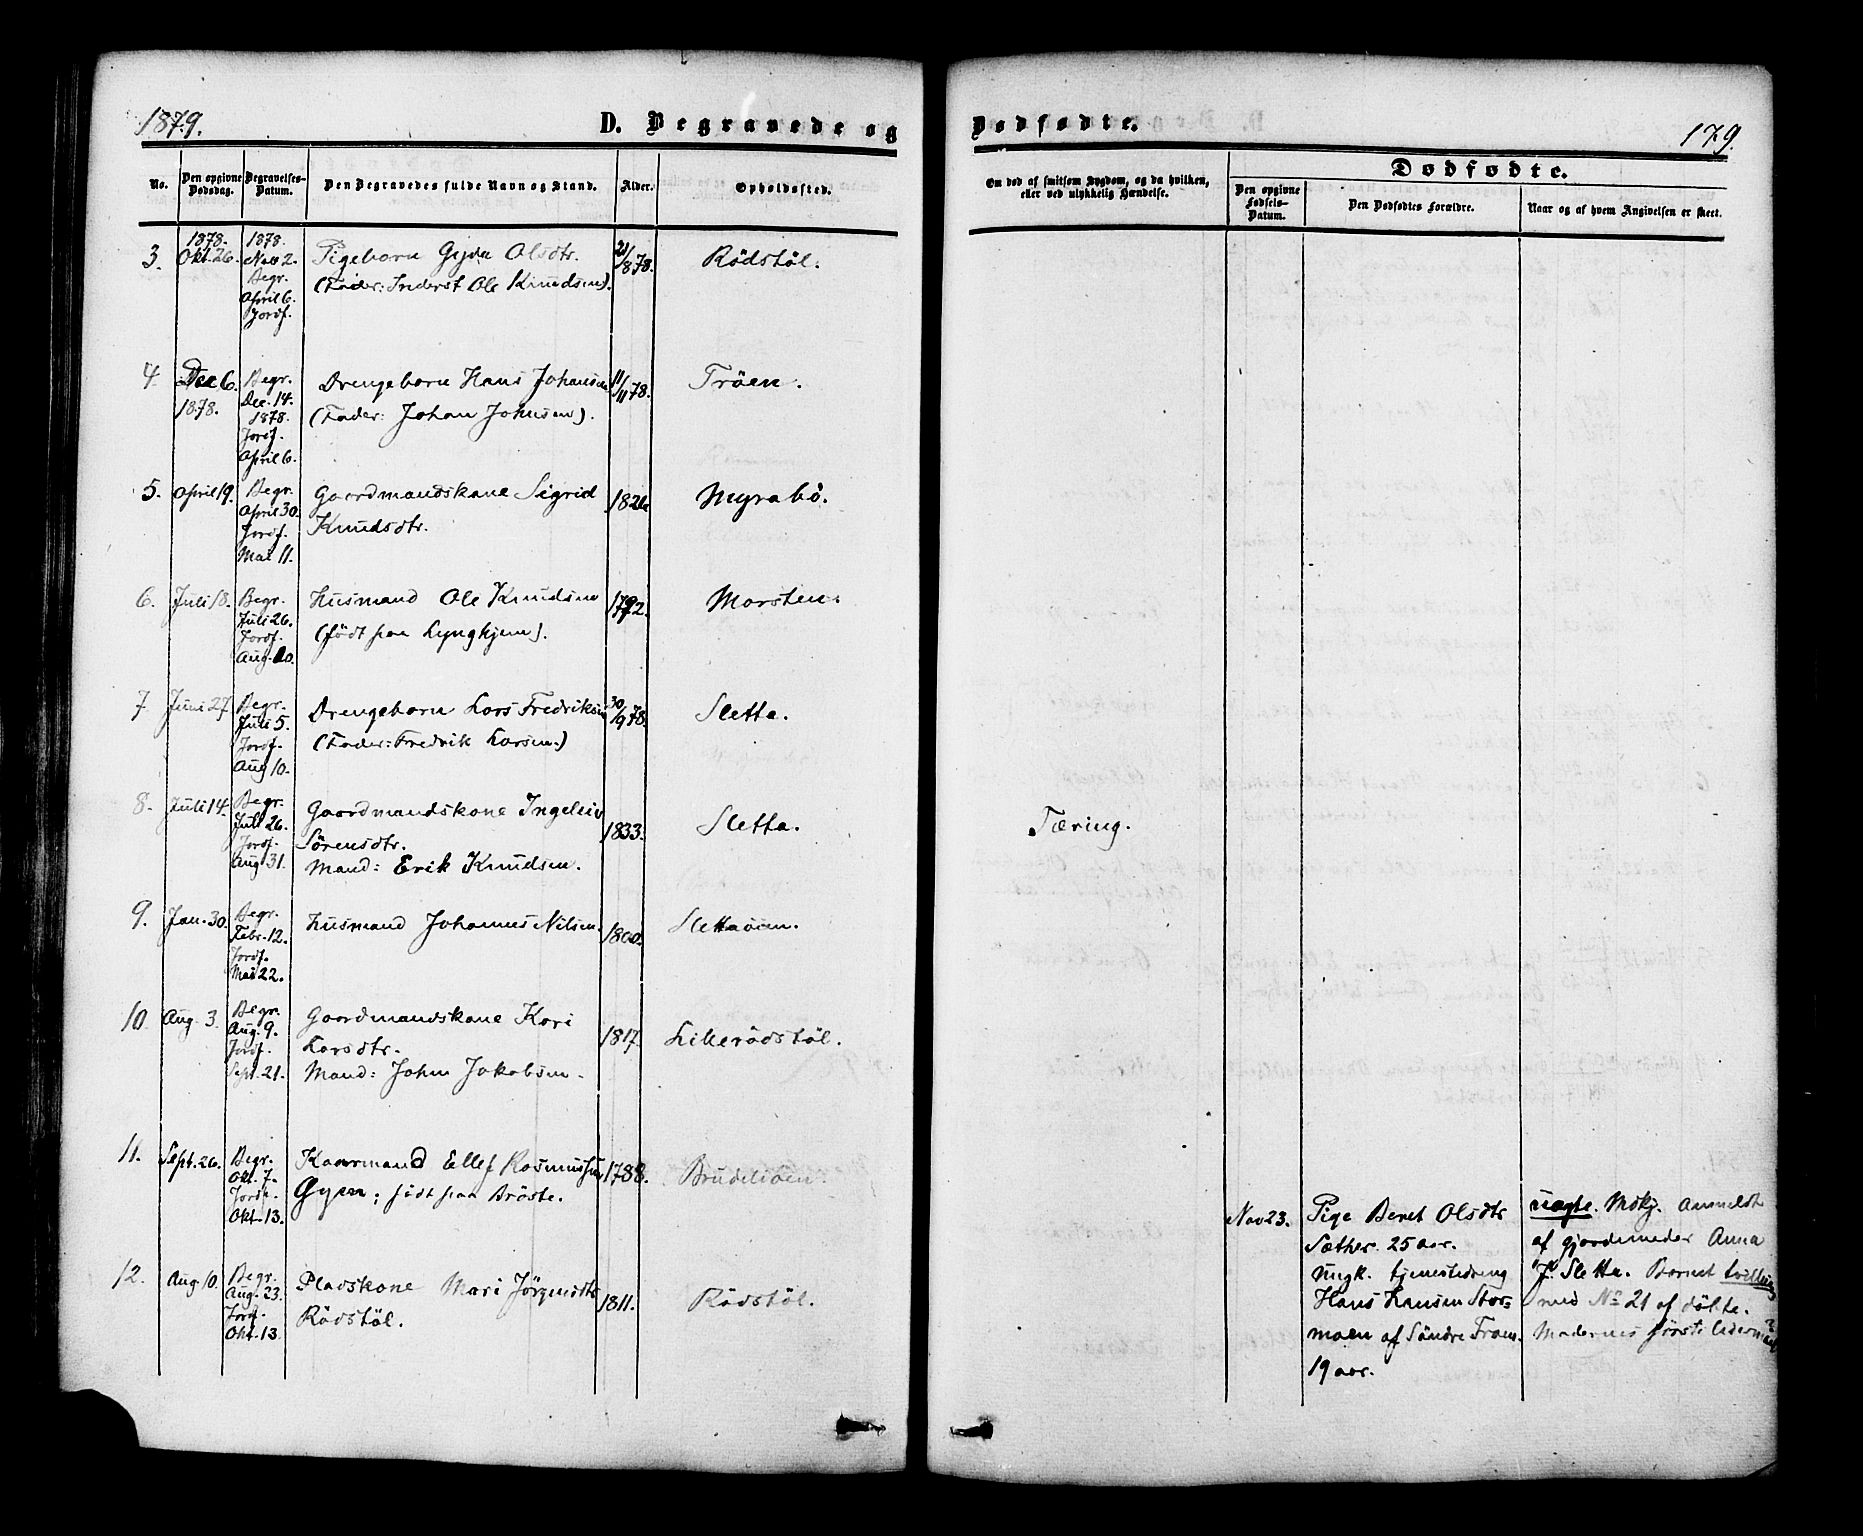 1879.
D. Begravede og
Dødfødte.
179.
No.
Den opgivne Dødsdag.
Begravelses-Datum.
Den Begravedes fulde Navn og Stand.
Alder.
Opholdssted.
Om død af smitsom Sygdom, og da hvilken, eller ved ulykkelig Hændelse.
Dødfødte.
Den opgivne Fødsels-Datum.
Den Dødfødtes Forældre.
Naar og af hvem Angivelsen er skeet.
3. 1878. Okt. 26.
1878. Nov 2. Begr. April 6. Jordf.
Pigebarn Gyda Olsdtr.
(Fader: Inderst Ole Knudsen).
21/8 78.
Rödstöl.
4. Dec 6. 1878.
Begr. Dec. 14. 1878. Jordf. April 6.
Drengebarn Hans Johansen
(Fader: Johan Johnsen).
11/11 78.
Tröen.
5. April 19.
Begr. April 30. Jordf. Mai 11.
Gaardmandskone Sigrid
Knudsdtr.
1826
Myrabö.
6. Juli 18.
Begr. Juli 26. Jordf. Aug. 10.
Husmand Ole Knudsen
(födt paa Lynghjem).
1792.
Morsten.
7. Juni 27
Begr. Juli 5. Jordf. Aug 10.
Drengebarn Lars Fredriksen
(Fader: Fredrik Larsen.)
30/9 78.
Sletta.
8. Juli 14.
Begr. Juli 26. Jordf. Aug 31.
Gaardmandskone Ingeleiv
Sörensdtr.
Mand: Erik Knudsen.
1833.
Sletta.
Tæring.
9. Jan. 30.
Begr. Febr. 12. Jordf. Mai 22.
Husmand Johannes Nilsen.
1800.
Slettaöien.
10. Aug. 3.
Begr. Aug. 9. Jordf. Sept. 21.
Gaardmandskone Kari
Larsdtr.
Mand: John Jakobsen.
1817.
Lillerödstöl.
11. Sept. 26.
Begr. Okt. 7. Jordf. Okt. 13.
Kaarmand Ellef Rasmussen
Gyen; födt paa Bröste.
1788.
12. Aug 10.
Begr. Aug. 23. Jordf. Okt. 13.
Pladskone Mari Jörgensdtr
Rödstöl.
1811.
Rödstöl.
Nov 23.
Pige Beret Olsdtr
Sæther. 25 aar.
Ungk. tjenestedreng
Hans Hansen Stor=
moen af Söndre Fron.
19 aar.
uægte. Mdkj. Anmeldt
af gjordemoder Anna
J. Sletta. Barnet tvilling
med No 21 af döbte.
Moderens første leiermaal